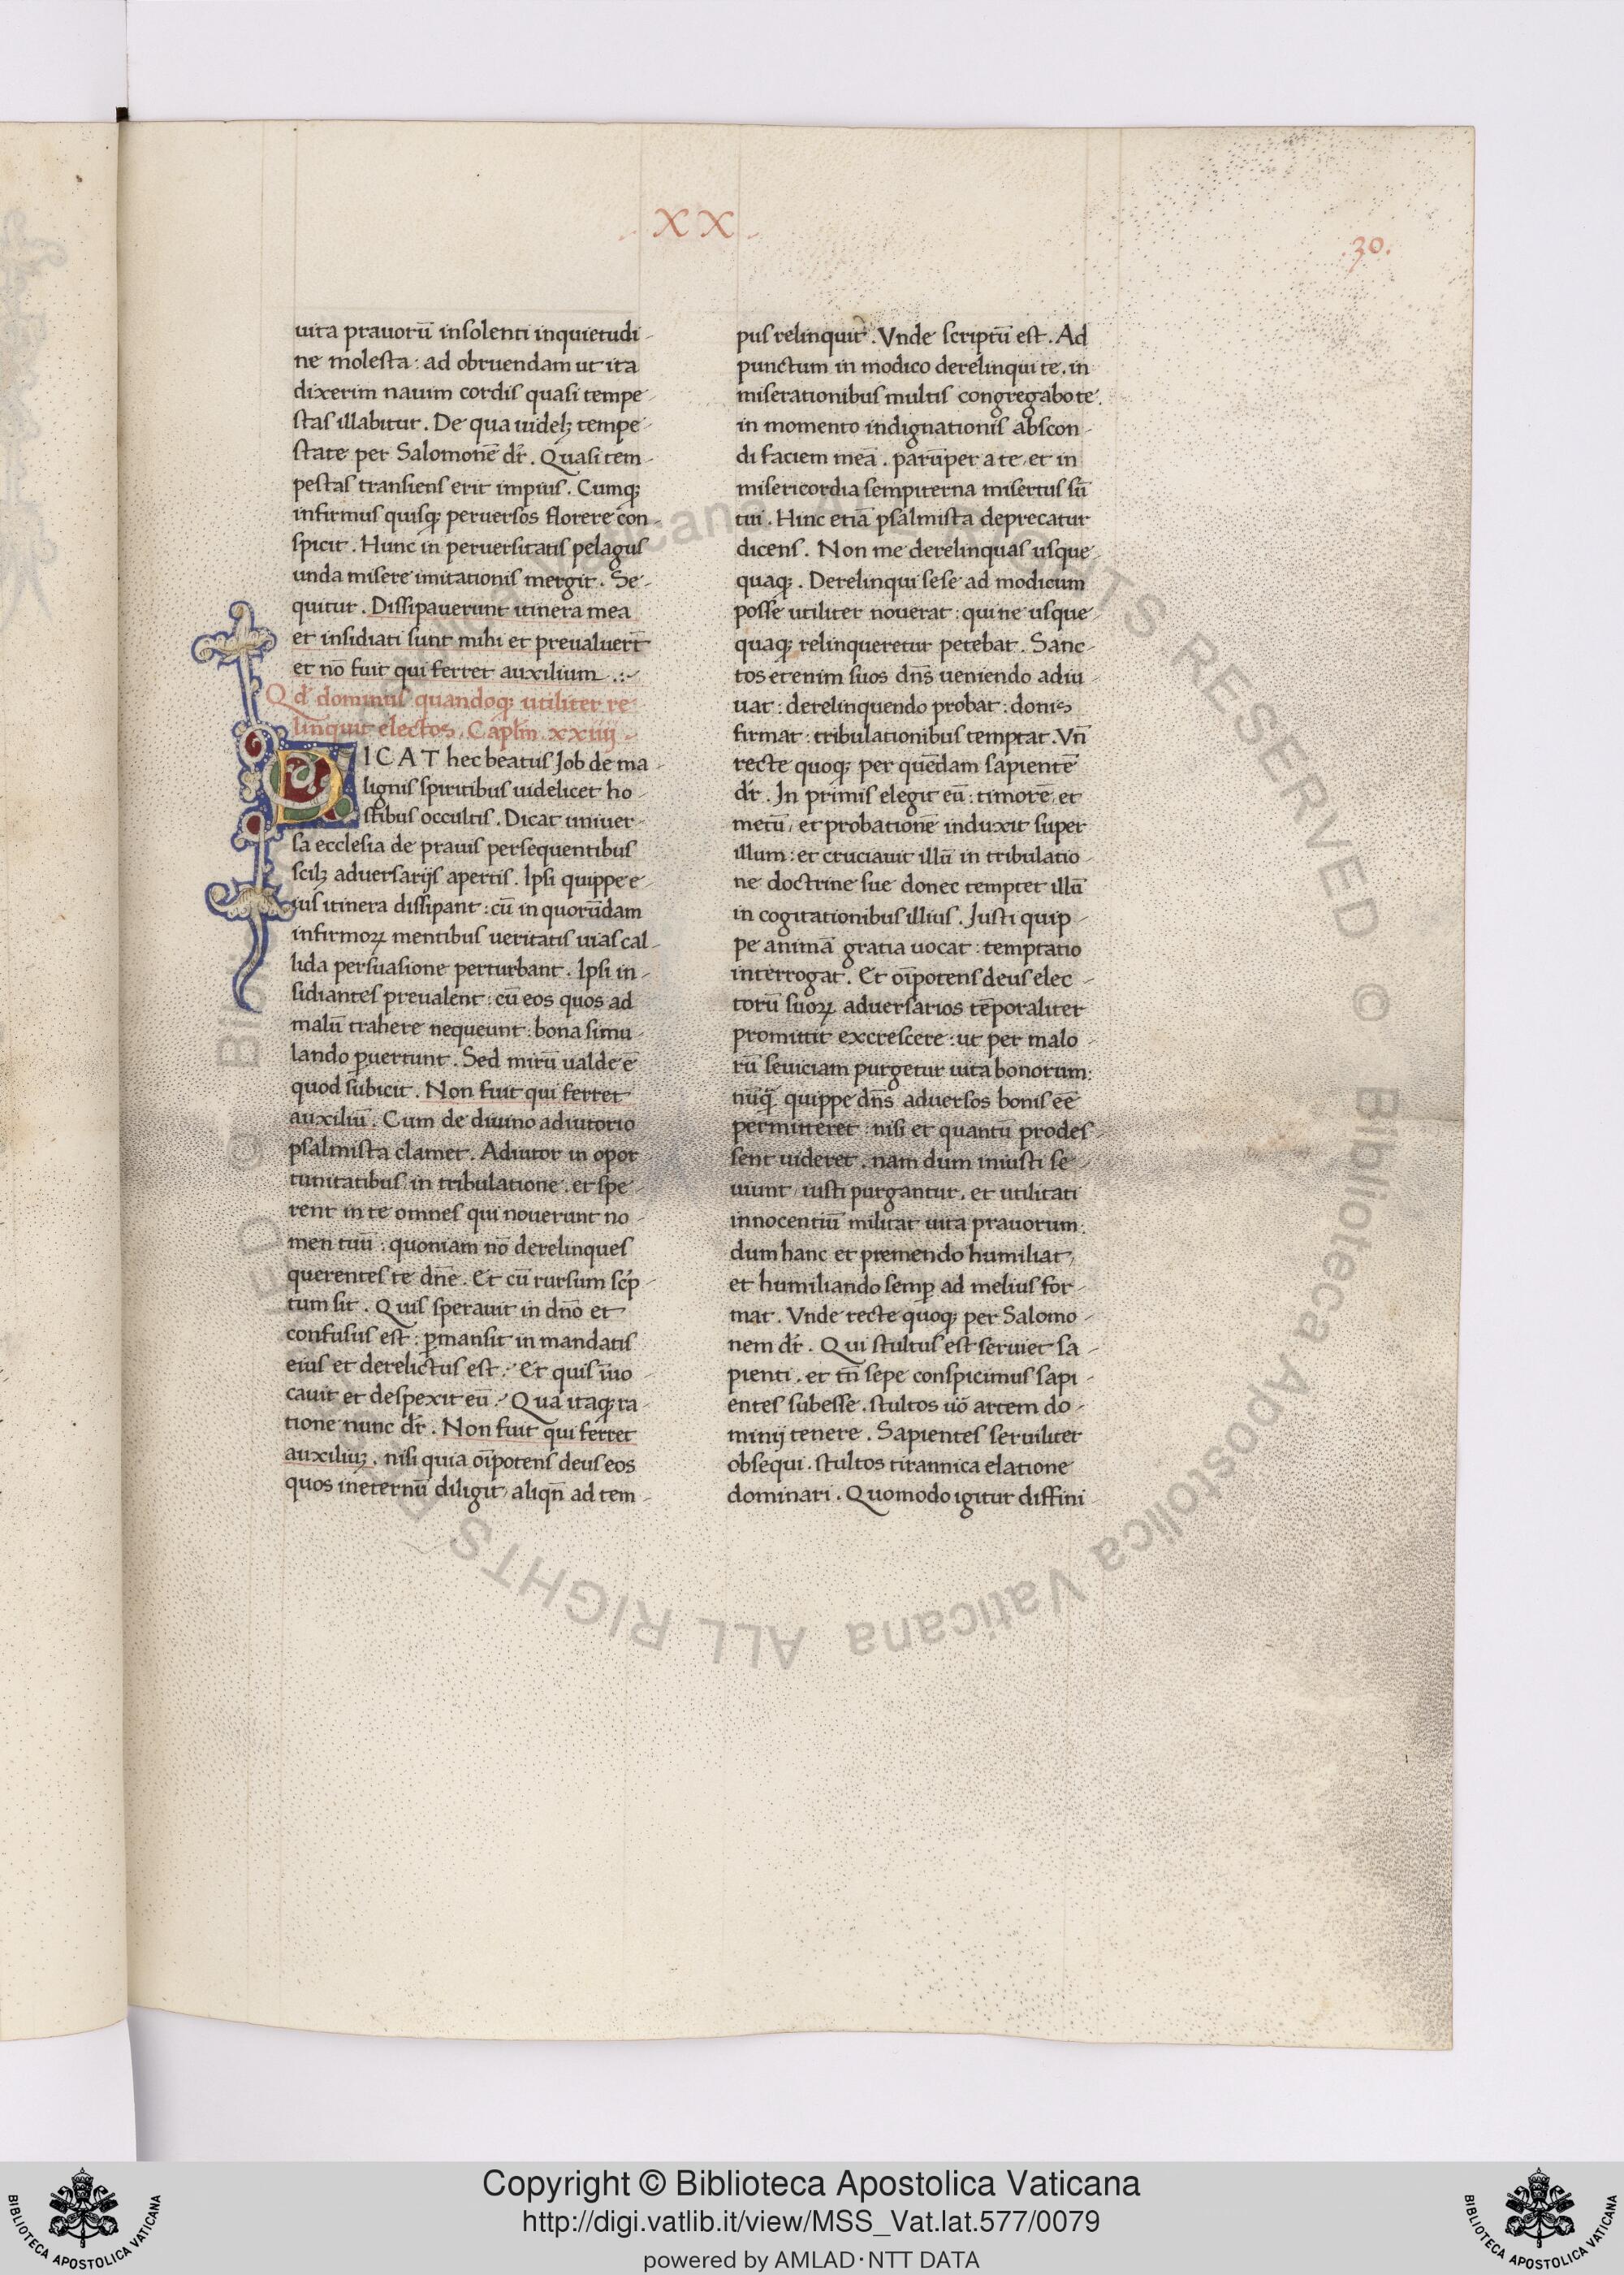 . XX .
.30.
uita prauorū insolenti inquietudi-
ne molesta : ad obruendam ut ita
dixerim nauim cordis quasi tempe-
stas illabitur . De qua uidelꝫ tempe-
state per Salomonē dr̄ . Quasi tem-
pestas transiens erit impius . Cumqꝫ
infirmus quisqꝫ peruersos florere con-
spicit . Hunc in peruersitatis pelagus
unda misere imitationis mergit . Se-
quitur . Dissipauerunt itinera mea
et insidiati sunt mihi et preualuert̄
et nō fuit qui ferret auxilium .:~
Qd̄ dominus quandoqꝫ utiliter re-
linquit electos . Caplm̄ . xxiiij .
DICAT hec beatus Job de ma-
lignis spiritibus uidelicet ho-
stibus occultis . Dicat uniuer-
sa ecclesia de prauis persequentibus
scilꝫ aduersarijs apertis . Ipsi quippe e-
ius itinera dissipant : cū in quorūdam
infirmoꝝ mentibus ueritatis uias cal-
lida persuasione perturbant . Ipsi in-
sidiantes preualent : cū eos quos ad
malū trahere nequeunt : bona simu-
lando ꝑuertunt . Sed mirū ualde ē
quod subicit . Non fuit qui ferret
auxiliū . Cum de diuino adiutorio
psalmista clamet . Adiutor in opor-
tunitatibus in tribulatione . et spe-
rent in te omnes qui nouerunt no-
men tuū : quoniam nō derelinques
querentes te dn̄e . Et cū rursum scp̄-
tum sit . Quis sperauit in dn̄o et
confusus est : ꝑmansit in mandatis
eius et derelictus est :~ Et quis īuo-
cauit et despexit eū :~ Qua itaqꝫ ra-
tione nunc dr̄ . Non fuit qui ferret
auxiliuꝫ . nisi quia oīpotens deus eos
quos ineternū diligit , aliqn̄ ad tem-
pus relinquit . Vnde scriptū est . Ad
punctum in modico derelinqui te . in
miserationibus multis congregabo te .
in momento indignationis abscon-
di faciem meā . parūper a te , et in
misericordia sempiterna misertus sū
tui . Hinc etiā psalmista deprecatur
dicens . Non me derelinquas usque-
quaqꝫ . Derelinqui sese ad modicum
posse utiliter nouerat : qui ne usque-
quaqꝫ relinqueretur petebat . Sanc-
tos etenim suos dn̄s ueniendo adiu-
uat : derelinquendo probat : donis
firmat : tribulationibus temptat . Vn̄
recte quoqꝫ per quēdam sapientē
dr̄ . In primis elegit eū : timorē , et
metū , et probationē induxit super
illum : et cruciauit illū in tribulatio-
ne doctrine sue donec temptet illū
in cogitationibus illius . Justi quip-
pe animā gratia uocat : temptatio
interrogat . Et oīpotens deus elec-
torū suoꝝ aduersarios tēporaliter
promittit excrescere : ut per malo-
rū seuiciam purgetur uita bonorum :
nūqꝫ quippe dn̄s aduersos bonis eē
permitteret : nisi et quantū prodes-
sent uideret . nam dum iniusti se-
uiunt , iusti purgantur . et utilitati
innocentiū militat uita prauorum :
dum hanc et premendo humiliat ,
et humiliando semꝑ ad melius for-
mat . Vnde recte quoqꝫ per Salomo-
nem dr̄ . Qui stultus est seruiet sa-
pienti . et tn̄ sepe conspicimus sapi-
entes subesse . stultos uō artem do-
minij tenere . Sapientes seruiliter
obsequi . stultos tirannica elatione
dominari . Quomodo igitur diffini-
Copyright © Biblioteca Apostolica Vaticana
http://digi.vatlib.it/view/MSS_Vat.lat.577/0079
powered by AMLAD·NTT DATA